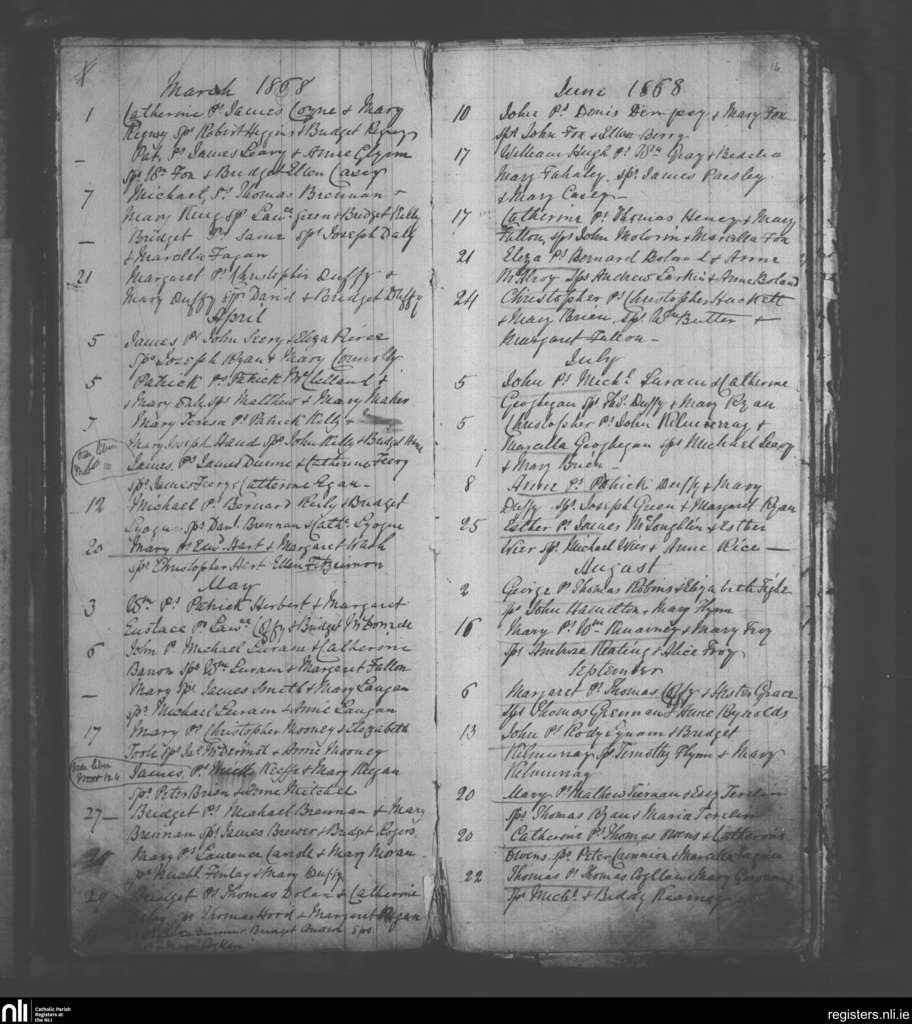 March 1868
1 Catherine Ps James Coyne & Mary
Regney Sps Robert Higgins & Bridget Regney
— Pat. Ps James Leary & Anne Glynn
Sps Wm Fox & Bridget Ellen Casey
7 Michael Ps Thomas Brennan &
Mary King Sps Lawce Green & Bridget Kelly
— Bridget Ps Same Sps Joseph Daly
& Marcella Fagan
21 Margaret Ps Christopher Duffy &
Mary Duffy Sps David & Bridget Duffy
April
5 James Ps John Seery & Eliza Pierce
Sps Joseph Ryan & Mary Connolly
5 Patrick Ps Patrick McClelland &
& Mary Sps Matthew & Mary Maher
7 Mary Teresa Ps Patrick Kelly &
Mary Joseph Hand Sps John Kelly & Bridget
James Ps James Dunne & Catherine Feery
Sps James Feery & Catherine Egan —
12 Michael Ps Bernard Reily & Bridget
Lyogue Sps Danl Brennan & Cath. Lyogue
20 Mary Ps Edwd Hart & Margaret Nash
Sps Christopher Hart Ellen Fitzsimon
May
3 Wm Ps Patrick Herbert & Margaret
Eustace Ps Lawce Coffy & Bridget
6 John P. Michael Euram & Catherine
Banon Sps Wm Euram & Margaret Fallon
— Mary Sps James Smith & Mary Langan
Sps Michael Euram & Anne Langan
17 Mary Ps Christopher Mooney & Elizabeth
Toole Sps Jas McDermot & Anne Mooney
James Ps Michl Keeffe & Mary Regan
Sps Peter Brien & Anne Mitchel
27 — Bridget Ps Michael Brennan & Mary
Brennan Sps James Brewer & Bridget Rogers
Mary Ps Laurence Carroll & Mary Moran
Sps Michl Finlay & Mary Duffy
29 Bridget Ps Thomas Dolan & Catherine
Sps Thomas Hood & Margaret Regan
Bridget Sps
16
June 1868
10 John Ps Denis Dempsey & Mary Fox
Sps John Fox & Ellen Berry
17 William Hugh Ps Wm Gray & Bedelia
Mary Fahaley. Sps James Paisley
& Mary Casey —
17 Catherine Ps Thomas Heney & Mary
Fallon Sps John & Marcella Fox
21 Eliza Ps Bernard Boland & Anne
McIlroy Sps Andrew Larkin & Anne Boland
24 Christopher Ps Christopher Hackett
& Mary Brien Sps Wm Butler &
Margaret Fallon —
July
5 John Ps Michl Euram & Catherine
Geoghegan Sps Ths. Duffy & Mary Ryan
5 Christopher Ps John Kilmurray &
Marcella Geoghegan Sps Michael Leavy
& Mary Brien —
8 Anne Ps Patrick Duffy & Mary
Duffy Sps Joseph Green & Margaret Ryan
25 Esther Ps James McLoughlin & Esther
Wier Sps Michael Wier & Anne Rice —
August
2 George Ps Thomas Robins & Elizabeth Tighe
Sps John Hamilton & Mary Flynn
16 Mary Ps Wm Kearney & Mary Troy
Sps Ambrose Keating & Alice Troy
September
6 Margaret Ps Thomas Coffy & Hester Grace
Sps Thomas Grennan & Anne Reynolds
13 John Ps Rody Egnam & Bridget
Kilmurray Sps Timothy Flynn & Mary
Kilmurray
20 Mary Ps Mathew Tiernan & Eliz
Sps Thomas Ryan & Maria
20 Catherine Ps Thomas Owens & Catherine
Owens Sps Peter & Marcella Fagan
22 Thomas Ps Thomas & Mary
Sps Michl & Biddy Kearney
nli Catholic Parish
Registers at
the NLI
registers.nli.ie